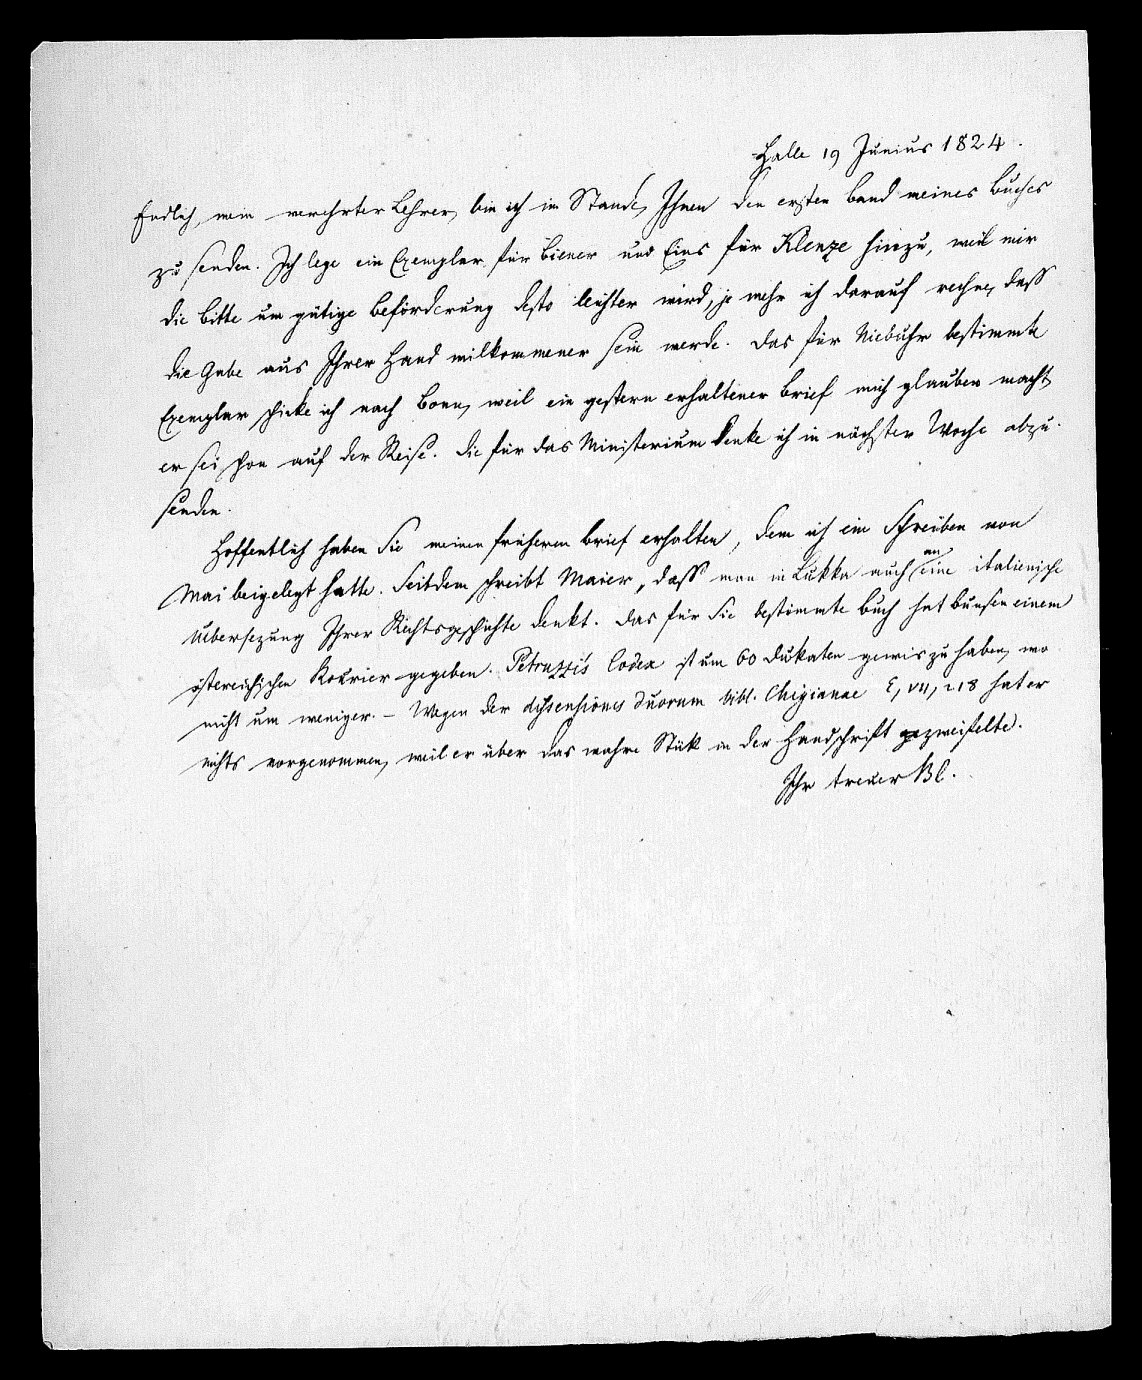 Halle 19 Junius 1824.
Endlich, mein verehrter Lehrer, bin ich im Stande, Ihnen den ersten Band meines Buches
zu senden. Ich lege ein Exemplar für Biener und Eins für Klenze hinzu, weil mir
die Bitte um gütige Beförderung desto leichter wird, je mehr ich darauf rechne, dass
die Gabe aus Ihrer Hand willkommener sein werde. Das für Niebuhr bestimmte
Exemplar schicke ich nach Bonn, weil ein gestern erhaltener Brief mich glauben macht,
er sei schon auf der Reise. Die für das Ministerium denke ich in nächster Woche abzu-
senden.
Hoffentlich haben Sie meinen früheren Brief erhalten, dem ich ein Schreiben von
Mai beigelegt hatte. Seitdem schreibt Maier, dass man in Lukka auch an eine italienische
Uebersezung Ihrer Rechtsgeschichte denkt. Das für Sie bestimmte Buch hat Bunsen einem
östereichischen Kourier gegeben. Petruzzis Codex ist um 60 Dukaten gewis zu haben, wo
nicht um weniger. – Wegen der dissensiones duorum bibl. Chigianae E, VII, 218 hat er
nichts vorgenommen, weil er über das wahre Stük in der Handschrift zweifelte.
Ihr treuer Bl.